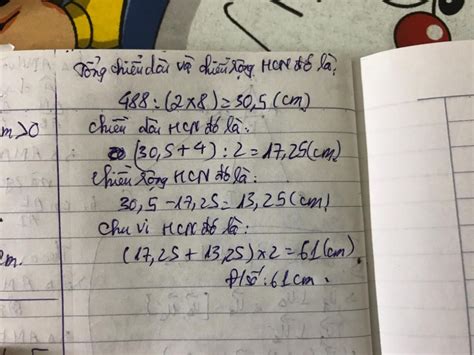 Tổng chiều dài và chiều rộng HCN đó là:
488 : (2x8) = 30,5 (cm)
m>0
chiều dài HCN đó là:
(30,5 + 4) : 2 = 17,25 (cm)
chiều rộng HCN đó là:
30,5 - 17,25 = 13,25 (cm)
chu vi HCN đó là:
(17,25 + 13,25) x 2 = 61 (cm)
m.
Đ/số : 61 cm .